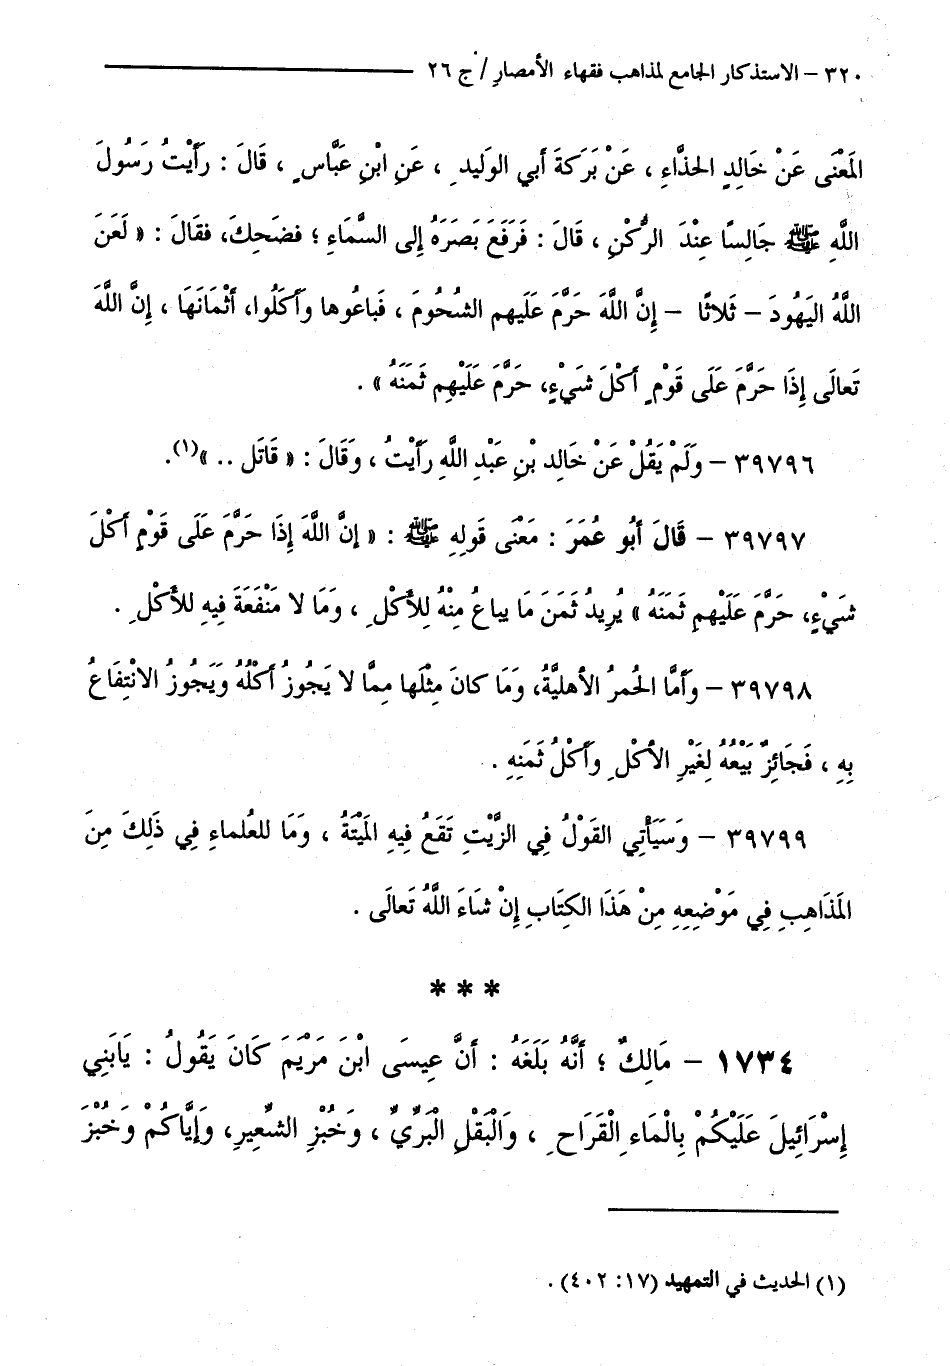 ٣٢٠ – الاستذكار الجامع لمذاهب فقهاء الأمصارِ / ج ٢٦
المَعْنَى عَنْ خَالِدٍ الحذَّاءِ ، عَنْ بَرَكَةَ أَبي الوَليدِ ، عَنِ ابْنِ عَبَّاسٍ ، قَالَ : رَأَيْتُ رَسُولَ
اللَّهِ ﷺ جَالِسًا عِنْدَ الرُّكْنِ ، قَالَ : فَرَفَعَ بَصَرَهُ إِلى السَّمَاءِ ؛ فضَحِكَ، فقَالَ : « لَعَنَ
اللَّهُ اليَهُودَ – ثَلاثًا – إِنَّ اللَّهَ حَرَّمَ عَلَيهم الشُحُومَ ، فَباعُوها وأَكَلُوا، أَثْمَانَهَا ، إِنَّ اللَّهَ
تَعالَى إِذَا حَرَّمَ عَلَى قَوْمٍ أَكْلَ شَيْءٍ، حَرَّمَ عَلَيْهِم ثَمَنَهُ » .
٣٩٧٩٦ – وَلَمْ يَقُلْ عَنْ خَالِد بْنِ عَبْدِ اللَّهِ رَأَيْتُ ، وَقَالَ : « قَاتَل .. »(١).
٣٩٧٩٧ – قَالَ أَبُو عُمَرَ : مَعْنَى قَولِهِ ﷺ : « إِنَّ اللَّهَ إِذَا حَرَّمَ عَلَى قَوْمٍ أَكْلَ
شَيْءٍ، حَرَّمَ عَلَيْهِمِ ثَمَنَهُ » يُرِيدُ ثَمَنَ مَا يباعُ مِنْهُ لِلأَكْلِ ، وَمَا لا مَنْفَعَةَ فِيهِ للأَكْلِ .
٣٩٧٩٨ – وَأَمَّا الحُمرُ الأهليَّةُ، وَمَا كانَ مِثْلَها مِمَّا لا يَجُوزُ أَكْلُهُ وَيَجُوزُ الانْتِفَاعُ
بِهِ ، فَجَائِزٌ بَيْعُهُ لِغَيْرِ الأكْلِ وأَكْلُ ثَمَنِهِ .
٣٩٧٩٩ – وَسَيَأْتِي القَوْلُ فِي الزَّيْتِ تَقَعُ فِيهِ المَيْتَةُ ، وَمَا للعُلماءِ فِي ذَلِكَ مِنَ
المَذَاهِبِ فِي مَوْضِعِهِ مِنْ هَذَا الكِتَابِ إِنْ شَاءَ اللَّهُ تَعالَى .
* * *
١٧٣٤ – مَالِكٌ ؛ أَنَّهُ بَلَغَهُ : أَنَّ عِيسَى ابْنَ مَرْيَمَ كَانَ يَقُولُ : يَابَنِي
إِسْرَائِيلَ عَلَيْكُمْ بِالْمَاءِ الْقَرَاحِ ، وَالْبَقْلِ الْبَرِّيِّ ، وَخُبْزِ الشَّعِيرِ، وَإِيَّاكُمْ وَخُبْزَ
(١) الحديث في التمهيد (١٧: ٤٠٢) .